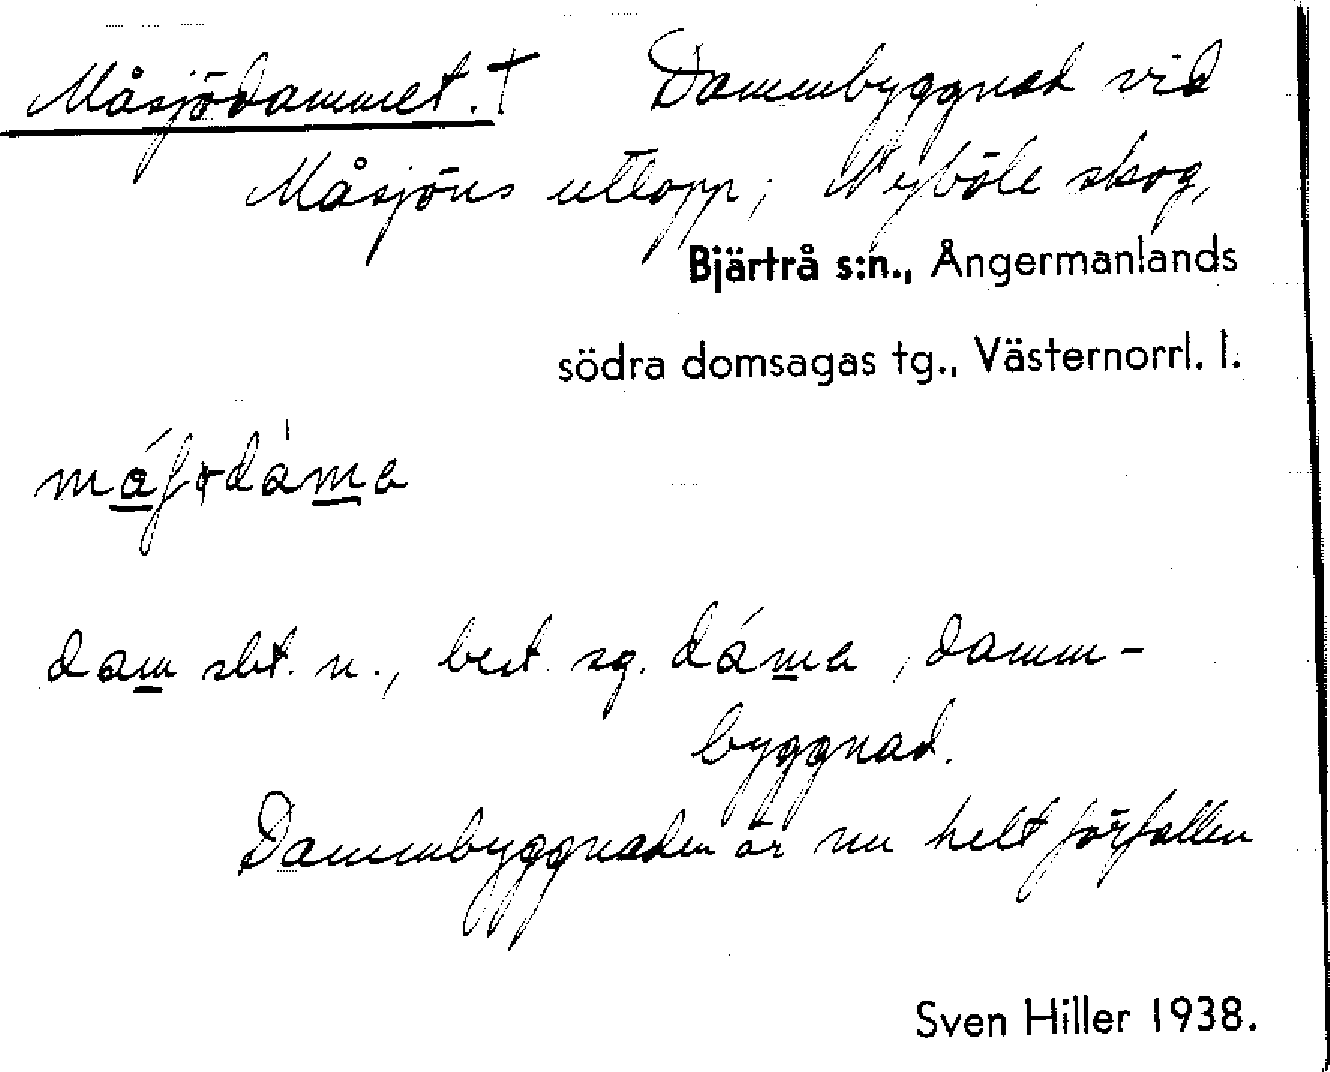 Måsjödammet. † Dammbyggnad vid
Måsjöns utlopp; Nyböle skog,
Bjärtrå s:n., Ångermanlands
södra domsagas tg., Västernorrl. l.
dam sbt. n., best. sg. dáma, damm-
byggnad.
Dammbyggnaden är nu helt förfallen
Sven Hiller 1938.